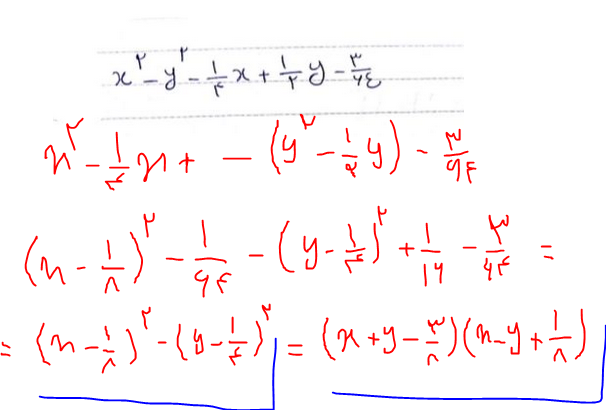 x² - y² - ۱/۴ x + ۱/۲ y - ۳/۶۴
x² - ۱/۴ x + - (y² - ۱/۲ y) - ۳/۶۴
(x - ۱/۸)² - ۱/۶۴ - (y - ۱/۴)² + ۱/۱۶ - ۳/۶۴ =
= (x - ۱/۸)² - (y - ۱/۴)² = (x + y - ۳/۸)(x - y + ۱/۸)